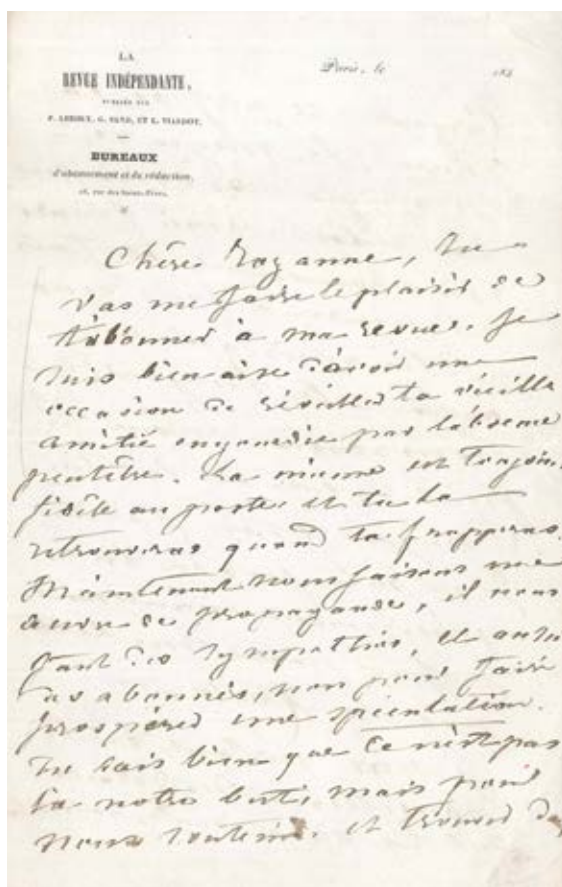 LA
REVUE INDÉPENDANTE,
PUBLIÉE PAR
P. LEROUX, G. SAND, ET L. VIARDOT.
BUREAUX
d'abonnement et de rédaction,
16, rue des Saints-Pères.
Paris, le 184
Chère Rozanne, tu
vas me faire le plaisir de
t'abonner à ma revue. Je
suis bien aise d'avoir une
occasion de réveiller ta vieille
amitié engourdie par l'absence
peutêtre. La mienne est toujours
fidèle au poste et tu la
retrouveras quand tu frapperas.
Maintenant nous faisons une
œuvre de propagande, il nous
faut des sympathies, et
des abonnés, non pour faire
prospérer une spéculation.
Tu sais bien que ce n'est pas
là notre but, mais pour
nous soutenir et trouver